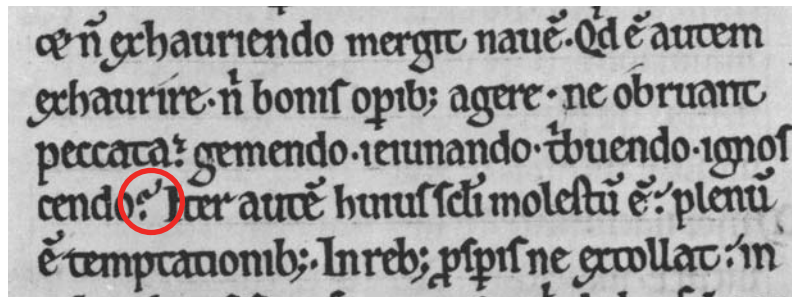 et n̄ exhauriendo mergit nauē. Qd̓ ē autem
exhaurire· n̓ bonis op̄ib; agere· ne obruant
peccata? gemendo·ieiunando·t̓buendo·ignos
cendo? Iter autē huius scl̄i molestū ē:́ plenū
ē temptationib;· In reb; ꝓsꝑis ne extollat:́ in